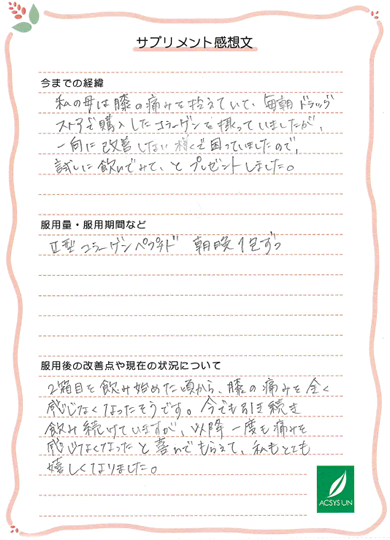 サプリメント感想文
今までの経緯
私の母は膝の痛みを抱えていて、毎朝ドラッグ
ストアで購入したコラーゲンを摂っていましたが、
一向に改善しない様で困っていましたので、
試しに飲んでみて、とプレゼントしました。
服用量・服用期間など
Ⅱ型コラーゲンペプチド 朝晩1包ずつ
服用後の改善点や現在の状況について
2箱目を飲み始めた頃から、膝の痛みを全く
感じなくなったそうです。今でも引き続き
飲み続けていますが、以降一度も痛みを
感じなくなったと喜んでもらえて、私もとても
嬉しくなりました。
ACSYS LIN